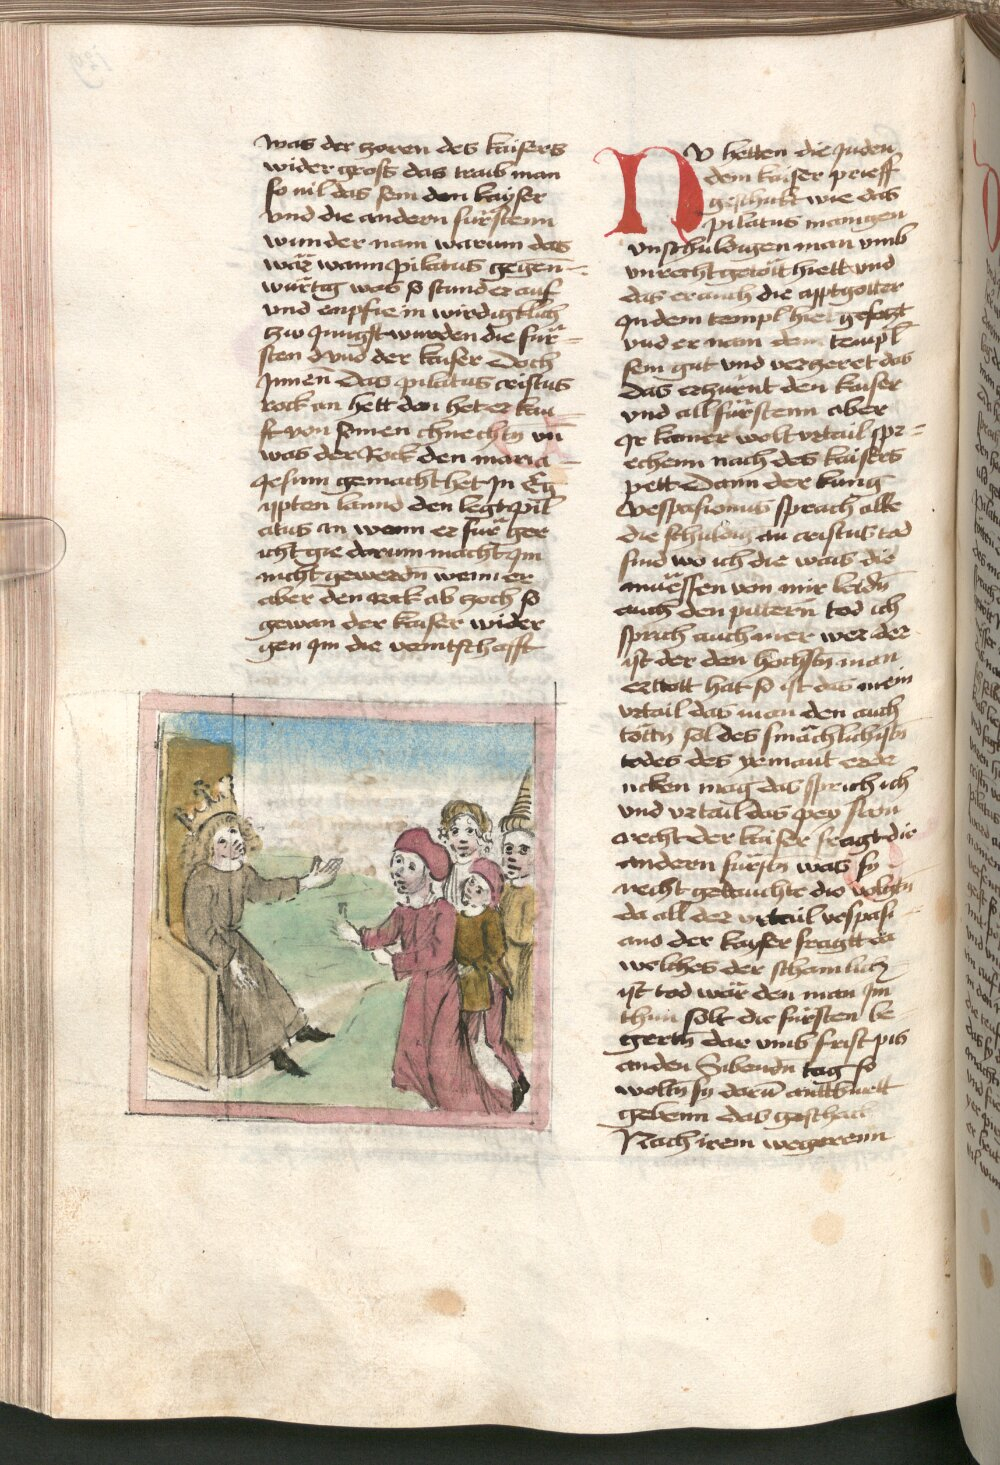 was der zoren des kaisers
wider groß das traib man
so vil das sein den kayser
vnd die andern fürstenn
wunder nam warum das
wär wann pilatus gegen-
würtig was so stund er auf
vnd enpfie in wirdigklich
zw Jungst wurden die für-
sten vnd der kaiser doch
Jnnen das pilatus cristus
rock an hett den het er kau-
fft von seinen chnechtn vn̄
was der Rock den maria
Jesum gemacht het Jn Eg
ippten lannd den legt pil
atus an wenn er für ger
icht gie darum macht Jm
nicht gewerdn wenn er
aber den rock ab zoch so
gewan der kaiser wider
gen Jm die veintschafft
NV hetten die Juden
dem kaiser prieff
geschickt wie das
pilatus manigen
vnschuldigen man vmb
vnrecht getött hiett vnd
das er auch die apptgötter
Jn dem templ hiet gesetzt
vnd er nam dem templ
sein gut vnd verzeret das
das erzürnt den kaiser
vnd all fürstenn aber
Jr kainer wolt vrtail spr-
echenn nach des kaisers
pett Dann der kunig
Vespasionus sprach alle
die schuldig an cristus tod
sind wo ich die wais die
müessen von mir leidn
auch den pittern tod ich
sprich auch mer wer der
ist der den höchstn man
ertött hat so ist das mein
vrtail das man den auch
töttn sol des smächlichistn
todes des yemant erde
ncken mag das sprich ich
vnd vrtail das pey mein
recht der kaiser fragt die
andern fürstn was sy
recht gedauchte die volgtn
da all der vrtail vespasi
ano der kayser fragtt da
welches der schamlich
ist tod wär den man Jm
thun solt die fürsten be
gertn dar vmb frist pis
an den Sibendn tag so
woltn sy darū antbuertt
gebenn das geschach
Nach irem wegerenn